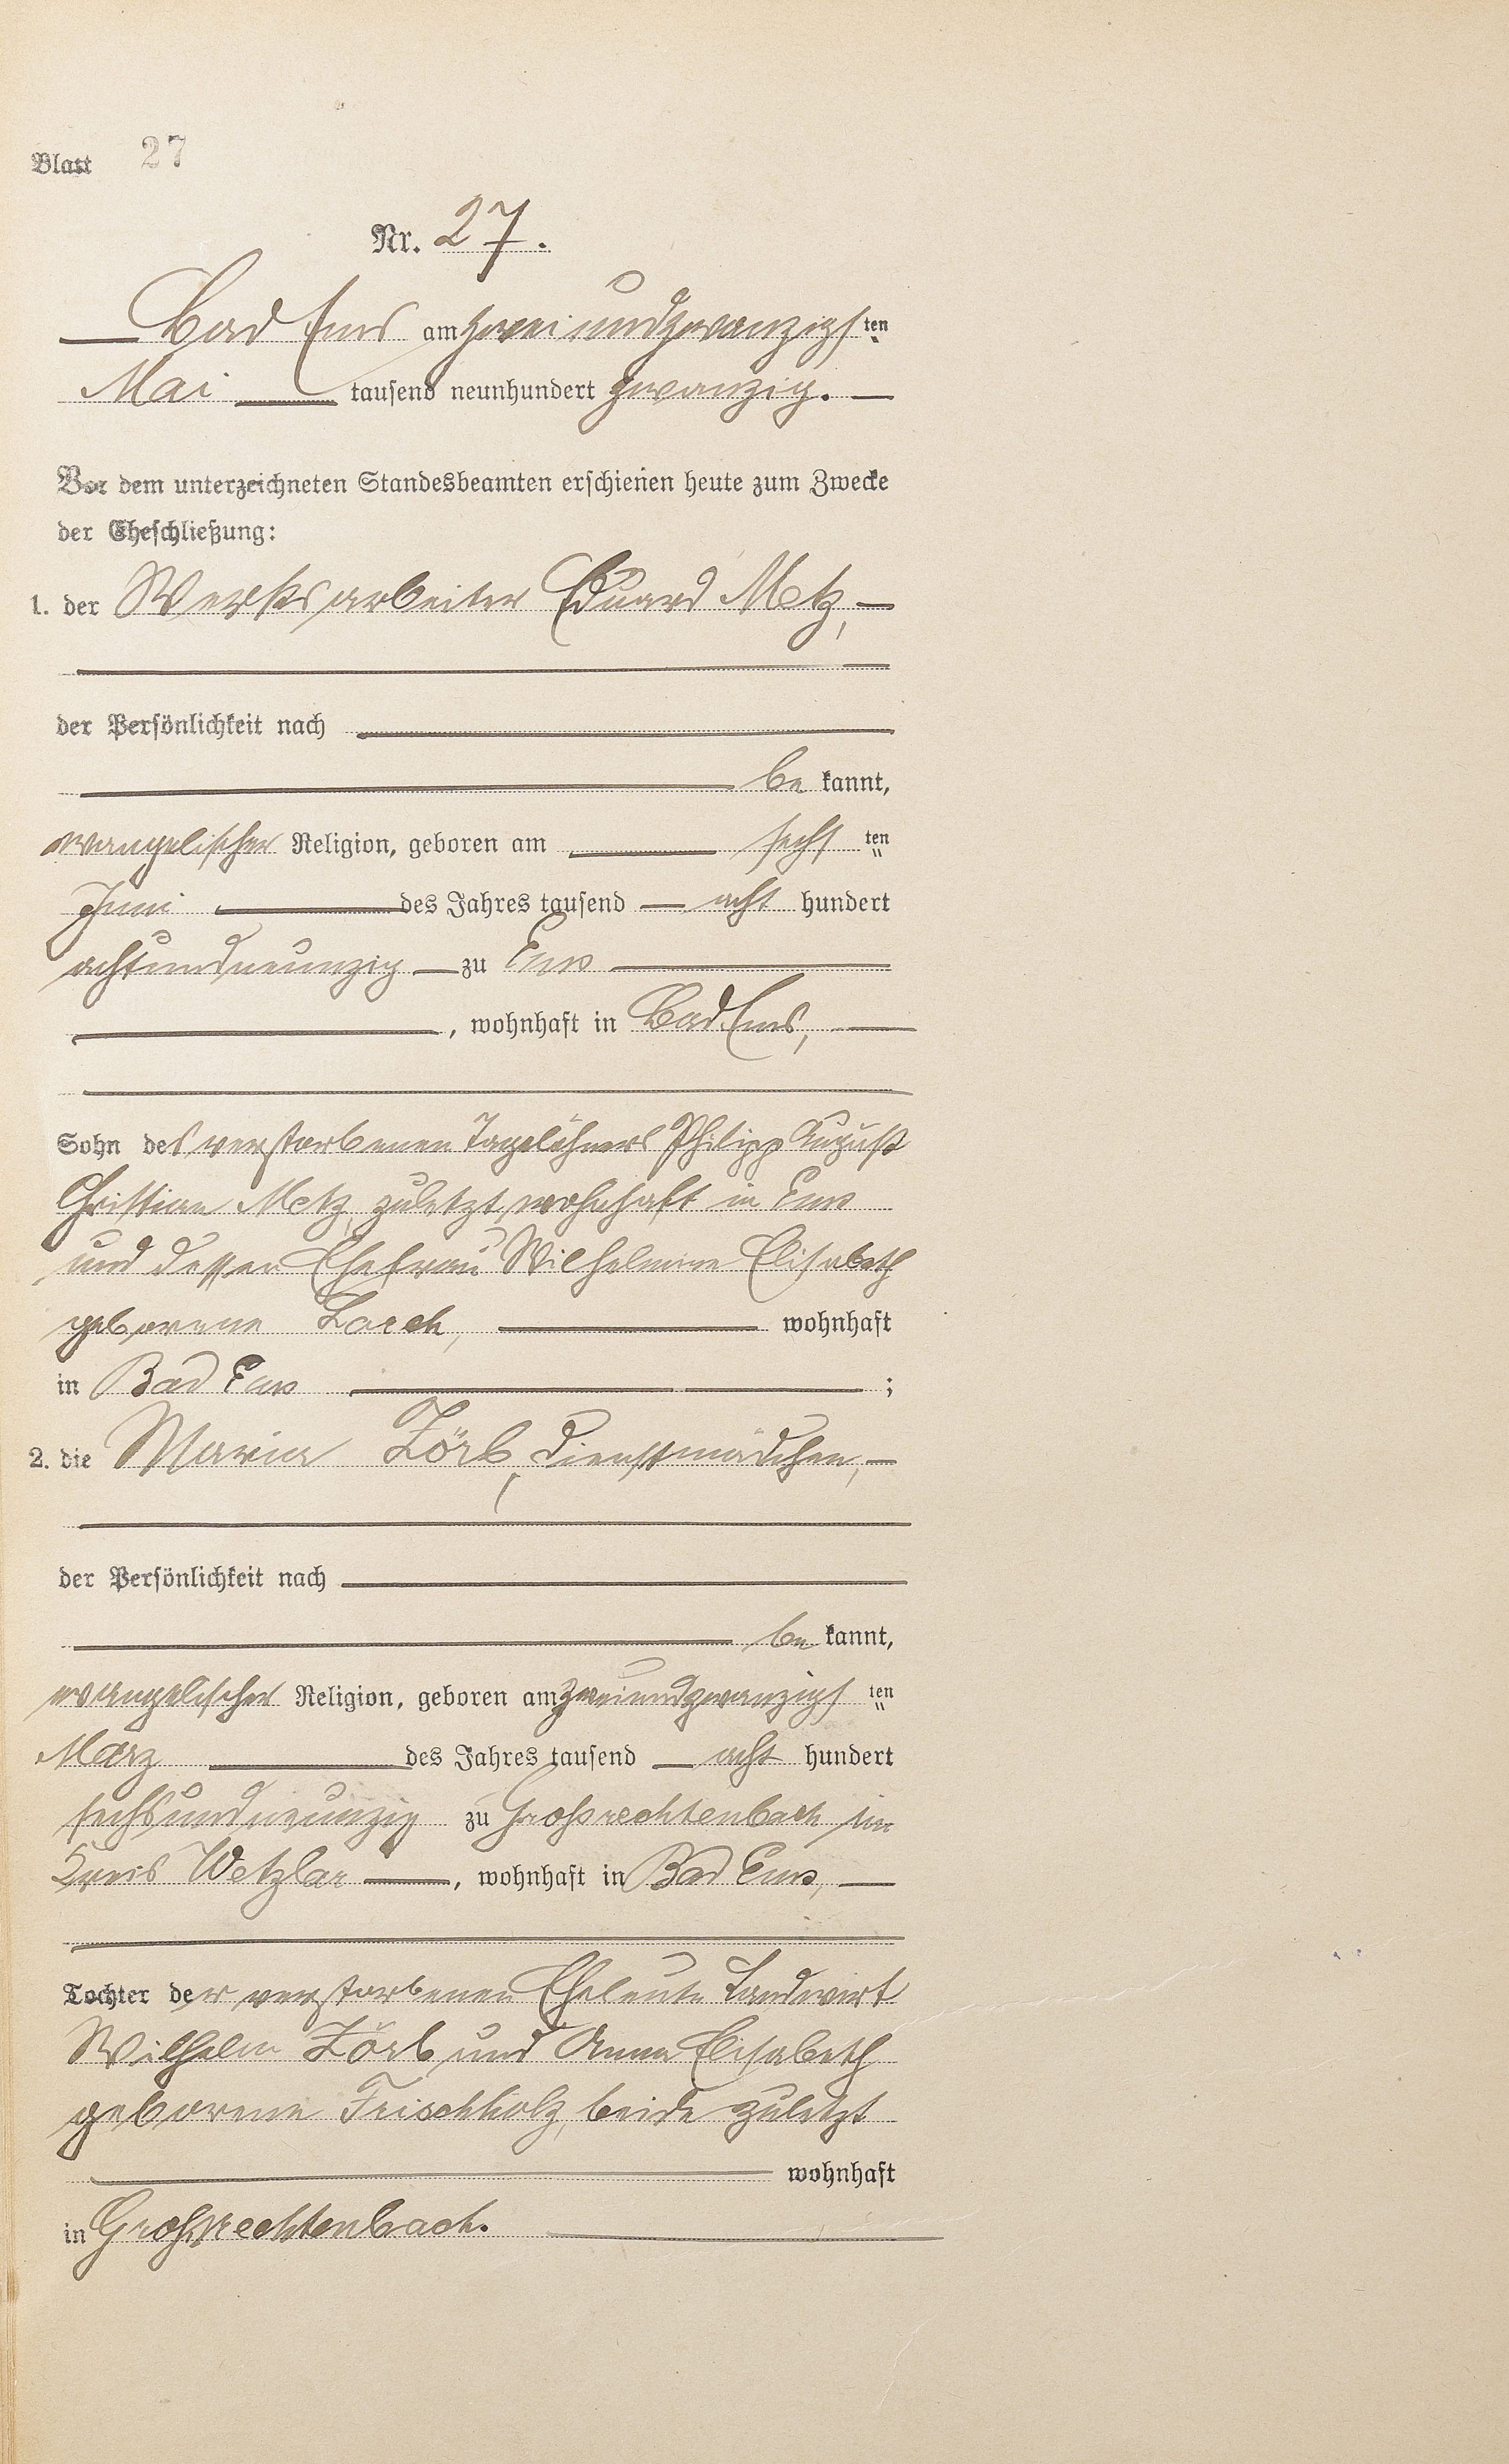 Blatt 27
Nr. 27.
Bad Ems am zweiundzwanzigsten
Mai tausend neunhundert zwanzig.
Vor dem unterzeichneten Standesbeamten erschienen heute zum Zwecke
der Eheschließung:
1. der Werksarbeiter Eduard Metz,
der Persönlichkeit nach
be kannt,
evangelischer Religion, geboren am sechsten
Juni des Jahres tausend acht hundert
achtundneunzig zu Ems
, wohnhaft in Bad Ems,
Sohn des verstorbenen Tagelöhners Philipp August
Christian Metz, zuletzt wohnhaft in Ems
und dessen Ehefrau Wilhelmine Elisabeth
geborene Lorch, wohnhaft
in Bad Ems ;
2. die Maria Zörb, Dienstmädchen,
der Persönlichkeit nach
be kannt,
evangelischer Religion, geboren am zweiundzwanzigsten
März des Jahres tausend acht hundert
sechsundneunzig zu Großrechtenbach im
Kreis Wetzlar , wohnhaft in Bad Ems,
Tochter der verstorbenen Eheleute Landwirt
Wilhelm Zörb und Anna Elisabeth
geborene Frischholz, beide zuletzt
wohnhaft
in Großrechtenbach.